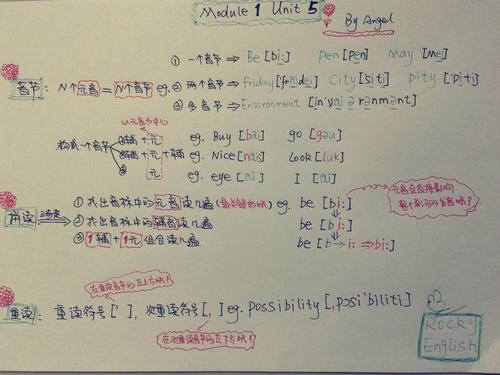 Module 1 Unit 5
By Angel
① 一个音节 ⇒ Be [bi:] Pen [pen] May [mei]
音节: N个元音 = N个音节 eg. ② 两个音节 ⇒ Friday [fraidei] City [siti] pity ['piti]
③ 多音节 ⇒ Environment [in'vaiərənmənt]
以元音为中心
构成一个音节
① 辅+元 eg. Buy [bai] go [gəu]
② 辅+元+辅 eg. Nice [nais] Look [luk]
③ 元 eg. eye [ai] I [ai]
① 找出音标中的元音读几遍 (最关键的哦) eg. be [bi:]
元音会直接影响
整个单词的发音哦!
拼读 ② 找出音标中的辅音读几遍 be [bi:]
③ 1辅+1元 组合读几遍 be [b→i: ⇒bi:]
在重读音节的左上方哦!
重读: 重读符号['], 次重读符号[ˌ] eg. possibility [ˌpɔsi'biliti]
在次重读音节的左下方哦!
Rocky
English